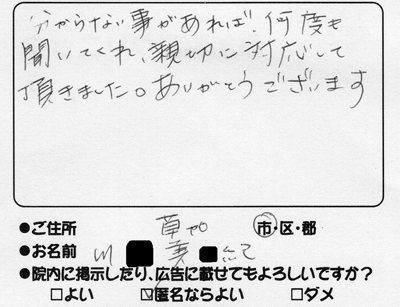 分からない事があれば、何度も
聞いてくれ、親切に対応して
頂きました。ありがとうございます
●ご住所 草加 市・区・郡
●お名前 川 美 紀
●院内に掲示したり、広告に載せてもよろしいですか？
□よい ☑匿名ならよい □ダメ